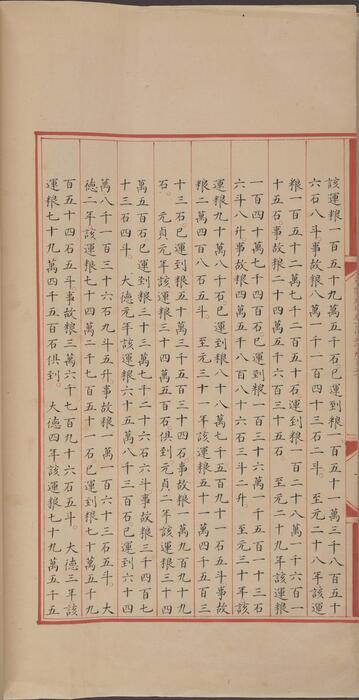 該運粮一百五十九萬五千石已運到粮一百五十一萬三千八百五十
六石八斗事故粮八萬一千一百四十三石二斗。 至元二十八年該運
粮一百五十二萬七千二百五十石運到粮一百二十八萬一千六百一
十五石事故粮二十四萬五千六百三十五石 至元二十九年該運粮
一百四十萬七千四百石已運到粮一百三十六萬一千五百一十三石
六斗八升事故粮四萬五千八百八十六石三斗二升。 至元三十年該
運粮九十萬八千石已運到粮八十八萬七千五百九十一石五斗事故
粮二萬四百八石五斗。 至元三十一年該運粮五十一萬四千五百三
十三石已運到粮五十萬三千五百三十四石事故粮一萬九百九十九
石。 元貞元年該運粮三十四萬五百石俱到元貞二年該運粮三十四
萬五百石已運到粮三十三萬七千二十六石六斗事故粮三千四百七
十三石四斗。 大德元年該運粮六十五萬八千三百石已運到六十四
萬八千一百三十六石九斗五升事故粮一萬一百六十三石五斗。 大
德二年該運粮七十四萬二千七百五十一石已運到粮七十萬五千九
百五十四石五斗事故粮三萬六千七百九十六石五斗。 大德三年該
運粮七十九萬四千五百石俱到。 大德四年該運粮七十九萬五千五